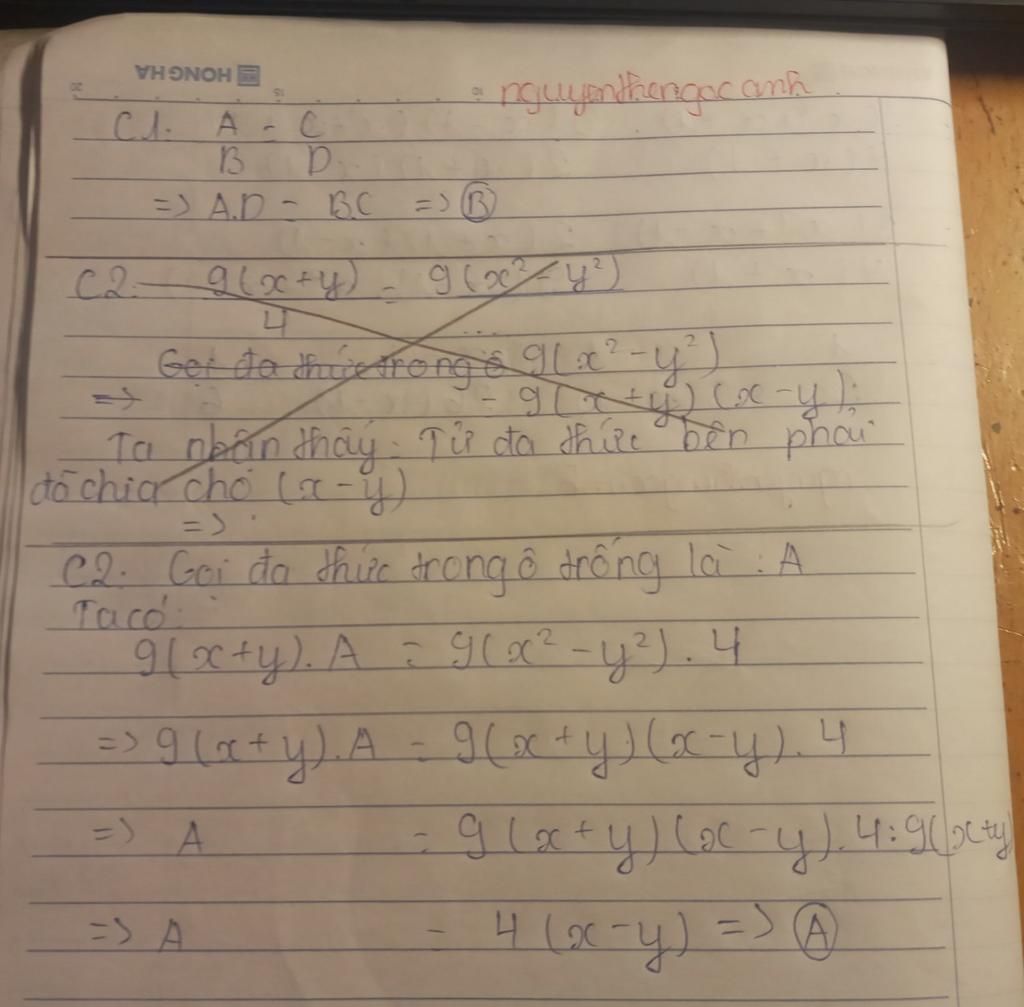 HONG HA
20 15 10
nguyenthengoc anh
C1. A = C
B D.
=> A.D = B.C => B
C2. 9(x+y) = 9(x² - y²)
4 ...
Gọi đa thức trong ô 9(x² - y²)
=> = 9(x+y)(x-y).
Ta nhận thấy. Tử đa thức bên phải
đã chia cho (x-y)
=>
C2. Gọi đa thức trong ô trống là : A
Ta có:
9(x+y). A = 9(x² - y²). 4
=> 9(x+y). A = 9(x+y)(x-y). 4
=> A = 9(x+y)(x-y). 4:9(x+y)
=> A = 4(x-y) => A